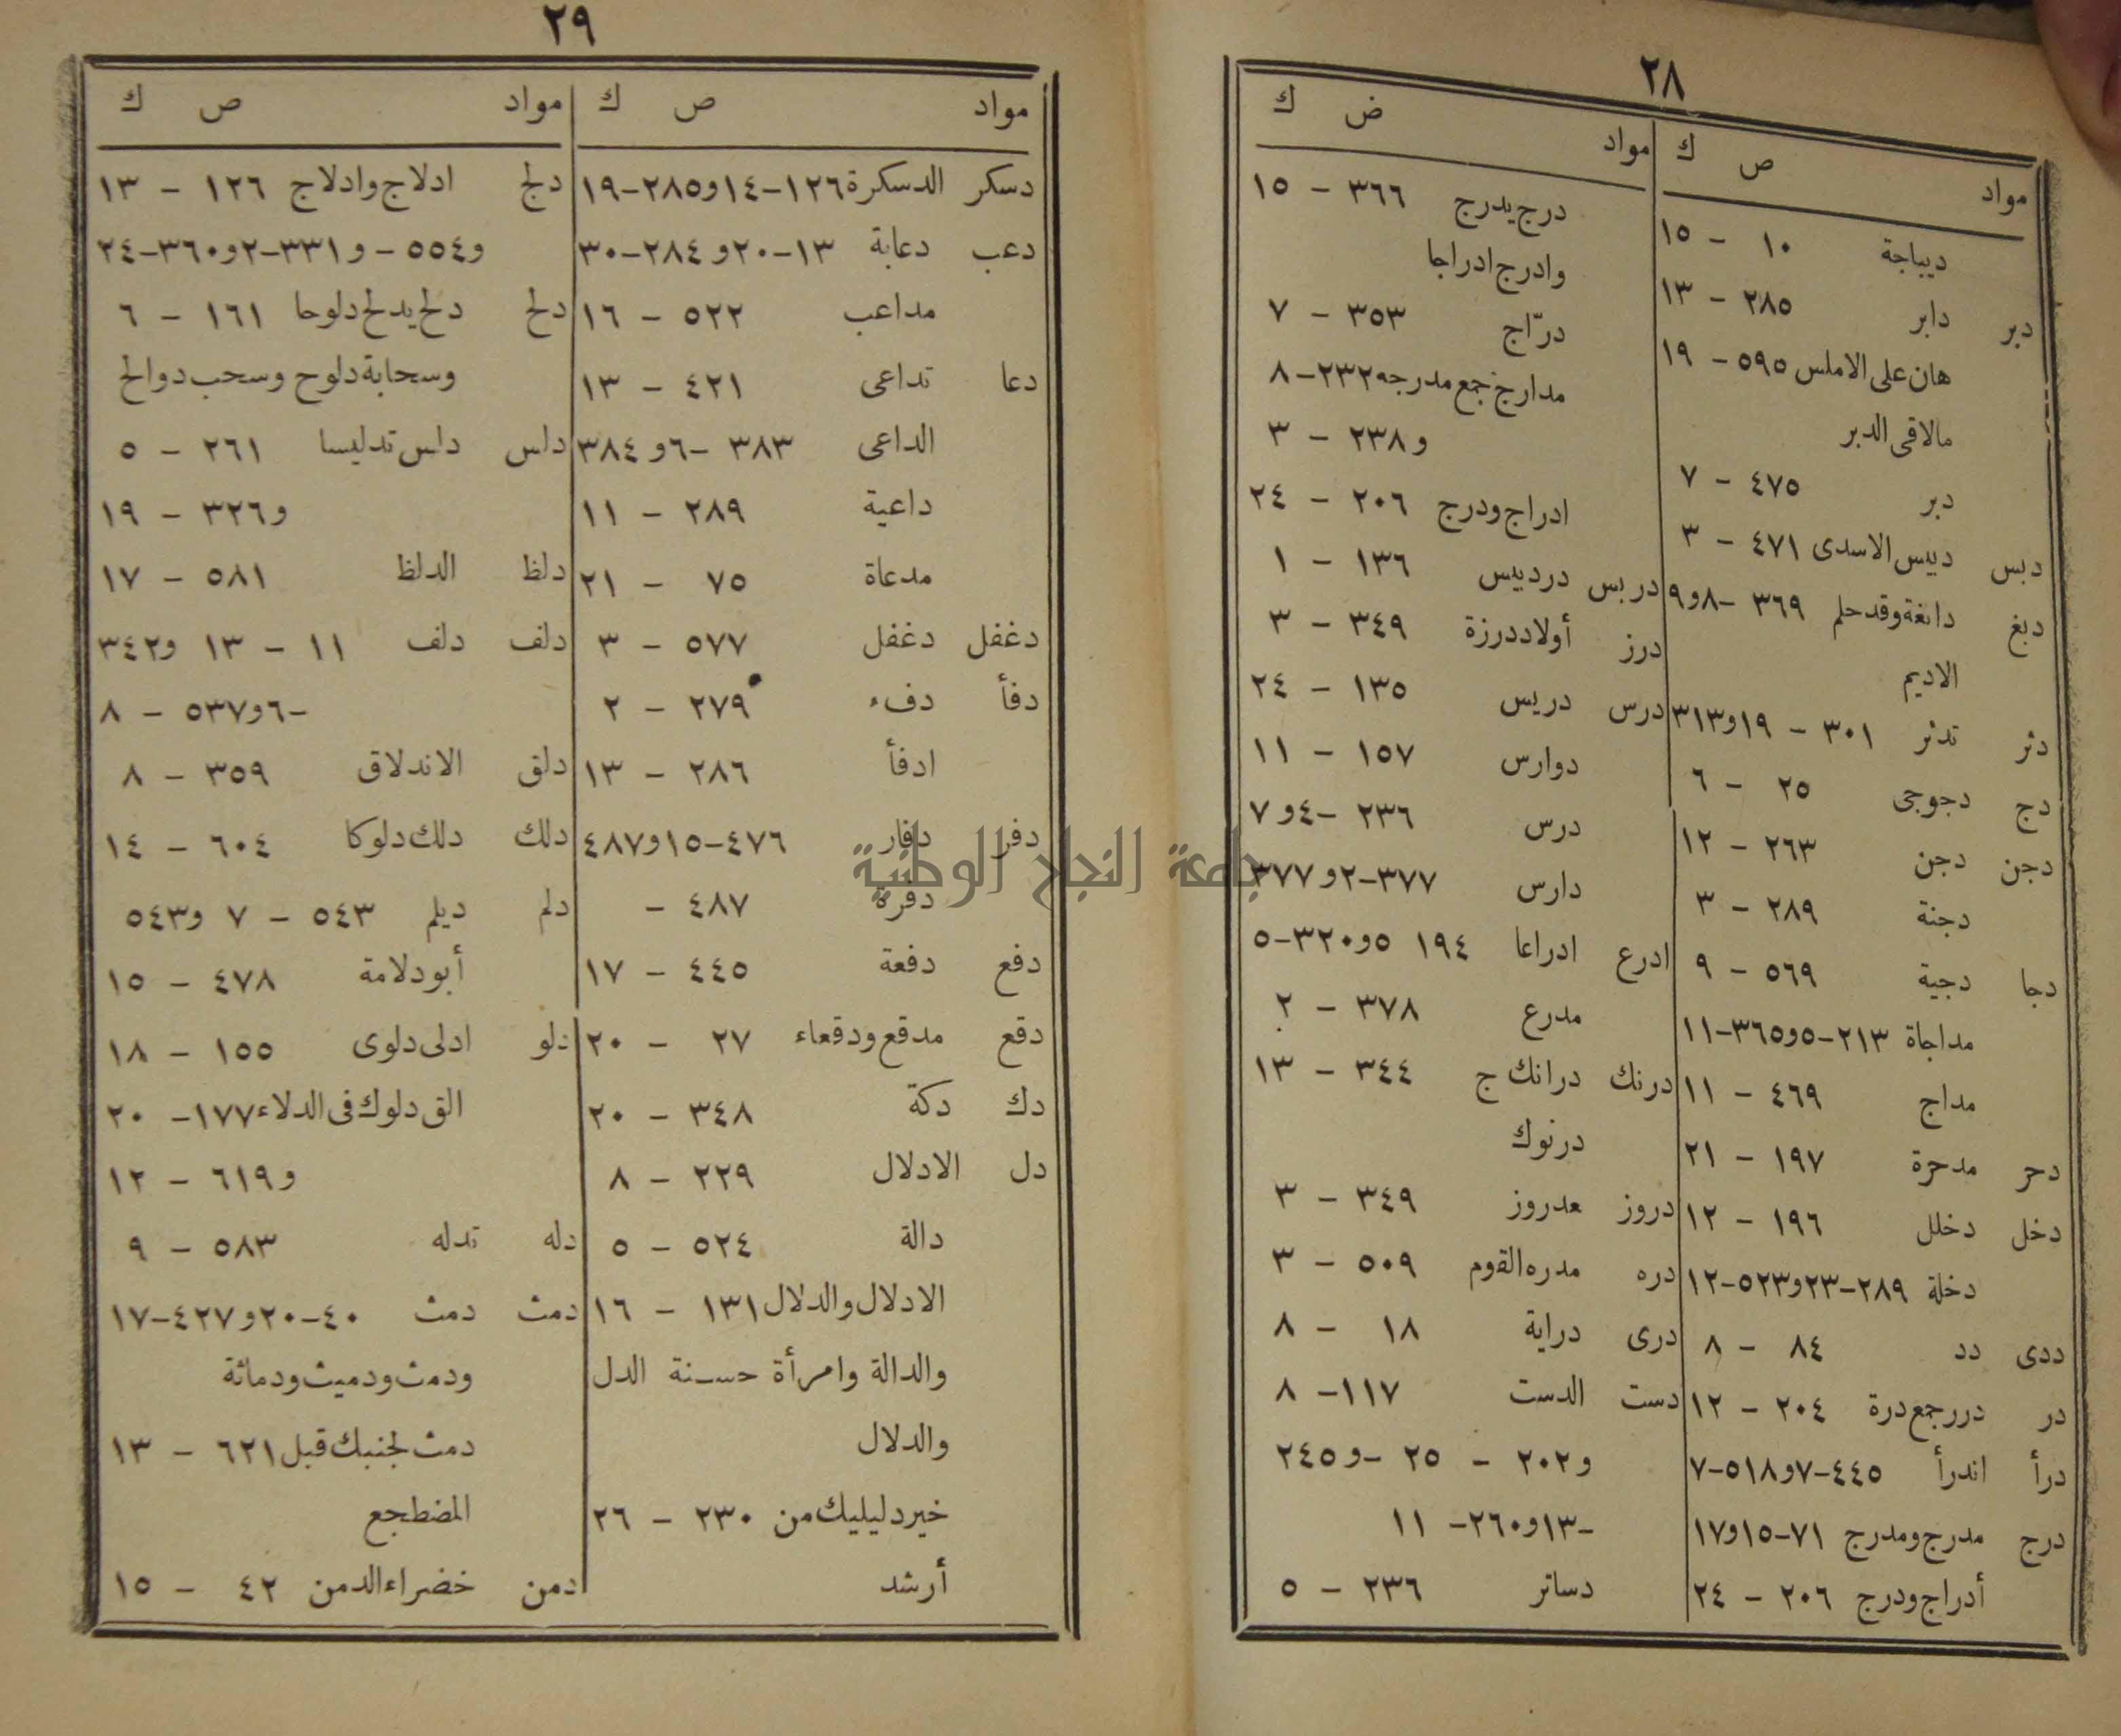 ٢٨
مواد ص ك
ديباجة ١٠ - ١٥
دبر دابر ٢٨٥ - ١٣
هان على الاملس ٥٩٥ - ١٩
مالاقى الدبر
دبر ٤٧٥ - ٧
دبس دبيس الاسدى ٤٧١ - ٣
دبغ دابغة وقد حلم ٣٦٩ - ٨و٩
الاديم
دثر تدثر ٣٠١ - ١٩و٣١٣
دج دجوجى ٢٥ - ٦
دجن دجن ٢٦٣ - ١٢
دجنة ٢٨٩ - ٣
دجا دجية ٥٦٩ - ٩
مداجاة ٢١٣-٥و٣٦٥-١١
مداج ٤٦٩ - ١١
دحر مدحرة ١٩٧ - ٢١
دخل دخلل ١٩٦ - ١٢
دخلة ٢٨٩-٢٣و٥٢٣-١٢
ددى دد ٨٤ - ٨
در درر جمع درة ٢٠٤ - ١٢
درأ اندرأ ٤٤٥-٧و٥١٨-٧
درج مدرج ومدرج ٧١-١٥و١٧
أدراج ودرج ٢٠٦ - ٢٤
مواد ض ك
درج يدرج ٣٦٦ - ١٥
وادرج ادراجا
درّاج ٣٥٣ - ٧
مدارج جمع مدرجه ٢٣٢-٨
و٢٣٨ - ٣
ادراج ودرج ٢٠٦ - ٢٤
دربس دردبيس ١٣٦ - ١
درز أولاد درزة ٣٤٩ - ٣
درس دريس ١٣٥ - ٢٤
دوارس ١٥٧ - ١١
درس ٢٣٦ -٤و٧
دارس ٣٧٧-٢و٣٧٧
ادرع ادراعا ١٩٤ ٥و٣٢٠-٥
مدرع ٣٧٨ - ٢
درنك درانك ج ٣٤٤ - ١٣
درنوك
دروز معدروز ٣٤٩ - ٣
دره مدره القوم ٥٠٩ - ٣
درى دراية ١٨ - ٨
دست الدست ١١٧- ٨
و٢٠٢ - ٢٥ -و٢٤٥
-١٣و٢٦٠- ١١
دساتر ٢٣٦ - ٥
٢٩
مواد ص ك
دسكر الدسكرة ١٢٦-١٤و٢٨٥-١٩
دعب دعابة ١٣-٢٠و٢٨٤-٣٠
مداعب ٥٢٢ - ١٦
دعا تداعى ٤٢١ - ١٣
الداعى ٣٨٣ -٦و٣٨٤
داعية ٢٨٩ - ١١
مدعاة ٧٥ - ٢١
دغفل دغفل ٥٧٧ - ٣
دفأ دفء ٢٧٩ - ٢
ادفأ ٢٨٦ - ١٣
دفر دفار ٤٧٦-١٥و٤٨٧
دفرة ٤٨٧ -
دفع دفعة ٤٤٥ - ١٧
دقع مدقع ودقعاء ٢٧ - ٢٠
دك دكة ٣٤٨ - ٢٠
دل الادلال ٢٢٩ - ٨
دالة ٥٢٤ - ٥
الادلال والدلال ١٣١ - ١٦
والدالة وامرأة حسنة الدل
والدلال
خير دليليك من ٢٣٠ - ٢٦
أرشد
مواد ص ك
دلج ادلاج وادلاج ١٢٦ - ١٣
و٥٥٤ - و٣٣١-٢و٣٦٠-٢٤
دلح دلح يدلح دلوحا ١٦١ - ٦
وسحابة دلوح وسحب دوالح
دلس دلس تدليسا ٢٦١ - ٥
و٣٢٦ - ١٩
دلظ الدلظ ٥٨١ - ١٧
دلف دلف ١١ - ١٣ و٣٤٢
-٦و٥٣٧ - ٨
دلق الاندلاق ٣٥٩ - ٨
دلك دلك دلوكا ٦٠٤ - ١٤
دلم ديلم ٥٤٣ - ٧ و٥٤٣
أبو دلامة ٤٧٨ - ١٥
دلو ادلى دلوى ١٥٥ - ١٨
الق دلوك فى الدلاء ١٧٧- ٢٠
و٦١٩ - ١٢
دله تدله ٥٨٣ - ٩
دمث دمث ٤٠-٢٠و٤٢٧-١٧
ودمث ودميث ودماثة
دمث لجنبك قبل ٦٢١ - ١٣
المضطجع
دمن خضراء الدمن ٤٢ - ١٥
جامعة النجاح الوطنية